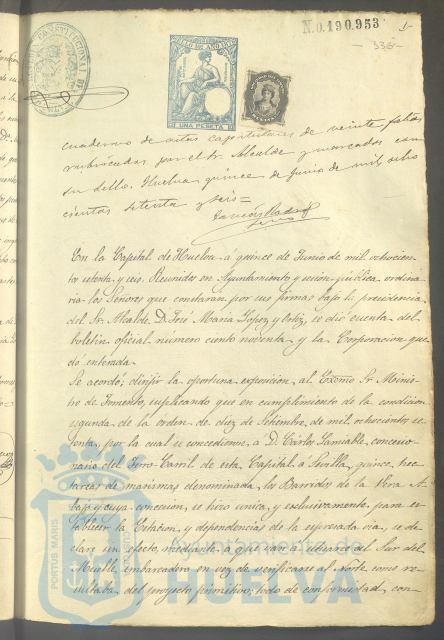 N.0.190.953
1
336
CONSTITUCIONAL DE
AÑO 1876
UNA PESETA
Cuaderno de actas capitulares de veinte folios
rubricados por el Sr. Alcalde y marcados con
su sello. Huelva quince de Junio de mil ocho
cientos setenta y seis =
En la Capital de Huelva á quince de Junio de mil ochocien
tos setenta y seis. Reunidos en Ayuntamiento y sesion publica ordina
ria los Señores que constaran por sus firmas bajo la presidencia
del Sr. Alcalde D. José Maria Lopez y Ortiz, se dió cuenta del
boletin oficial numero ciento noventa y la Corporacion que
dó enterada.
Se acordó; dirijir la oportuna exposicion, al Excmo Sr. Minis
tro de Fomento, suplicando que en cumplimiento de la condicion
segunda de la orden de diez de Setiembre de mil ochocientos se
tenta, por la cual se concedieron á D. Carlos Lamiable, concesio
nario del Ferro-Carril de esta Capital á Sevilla, quince hec
tareas de marismas denominada los Barridos de la Vera A
bajo y cuya concesion se hizo unica y exclusivamente para es
tablecer la Estacion y dependencias de la espresada via, se de
clare sin efecto mediante á que van á situarse del Sur del
Muelle Embarcadero en vez de verificarse al Norte como re
sultaba del proyecto primitivo; todo de conformidad con
PORTUS MARIS
Ayuntamiento de
HUELVA